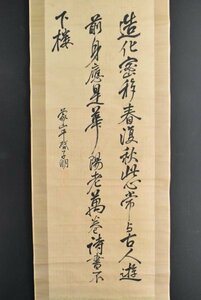 造化密移春復秋此心常与古人遊
前身應是華陽老萬卷詩書不
下樓